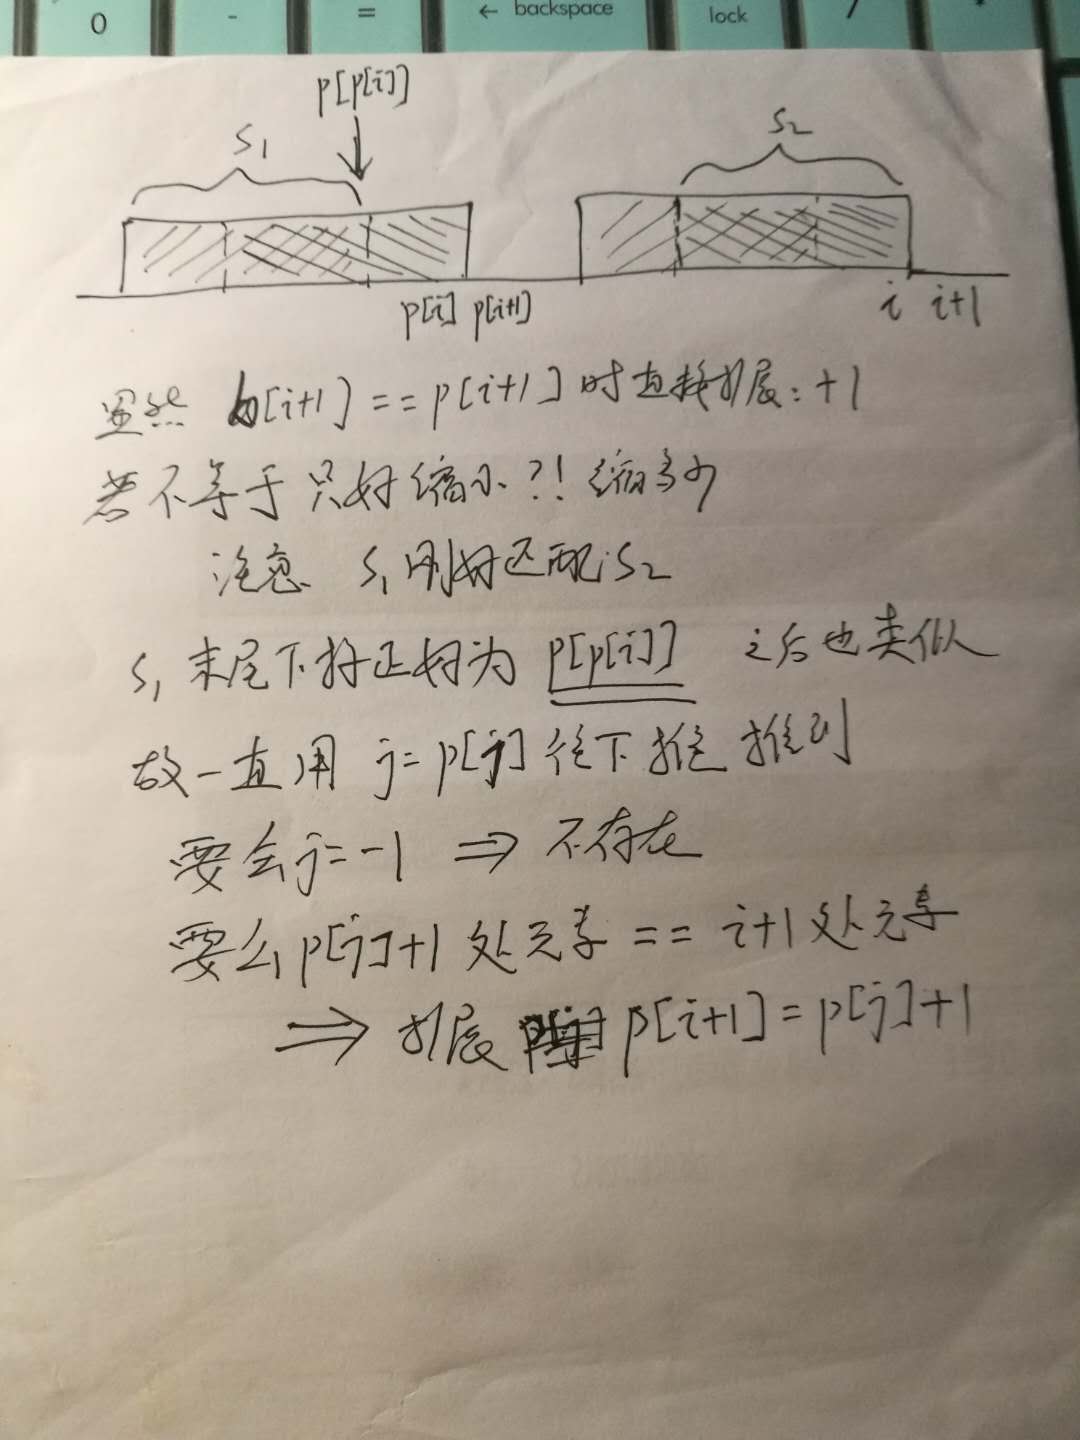 0 - = ← backspace lock / *
p[p[i]]
S₁ S₂
p[i] p[i+1] i i+1
显然 b[i+1] == p[i+1] 时直接扩展：+1
若不等于只好缩小?! 缩多少
注意 S₁刚好匹配S₂
S₁ 末尾下标正好为 p[p[i]] 之后也类似
故一直用 j=p[j] 往下推 推到
要么j=-1 ⇒ 不存在
要么p[j]+1 处元素 == i+1 处元素
⇒ 扩展 p[i+1] = p[j]+1